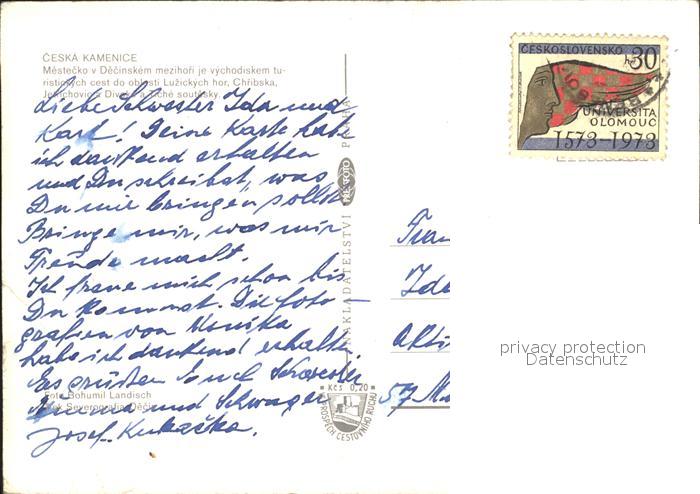 ČESKÁ KAMENICE
Městečko v Děčínském mezihoří je východiskem tu-
ristických cest do oblasti Lužických hor, Chřibska,
Jetřichovic, Divoké a Tiché soutěsky.
Liebe Schwester Ida und
Karl! Deine Karte habe
ich dankend erhalten
und Du schreibst, was
Du mir bringen sollst.
Bringe mir, was mir
Freude macht.
Ich freue mich schon bis
Du kommst. Die Foto-
grafien von Monika
habe ich dankend erhalten.
Es grüßen Euch Schwester
und Schwager
Josef Kukačka.
Foto Bohumil Landisch
Tisk Severografia Děčín
NAKLADATELSTVÍ PRESSFOTO PRAHA
Kčs 0,20
PROSPĚCH CESTOVNÍHO RUCHU
ČESKOSLOVENSKO
30
UNIVERSITA
OLOMOUC
1573-1973
Frau
Ida
57
privacy protection
Datenschutz